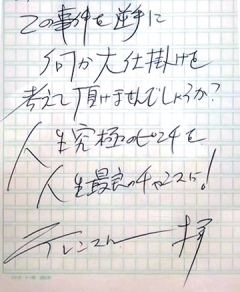 この事件を逆手に
何か大仕掛けを
考えて頂けませんでしょうか?
人生究極のピンチを
人生最良のチャンスに!
拝